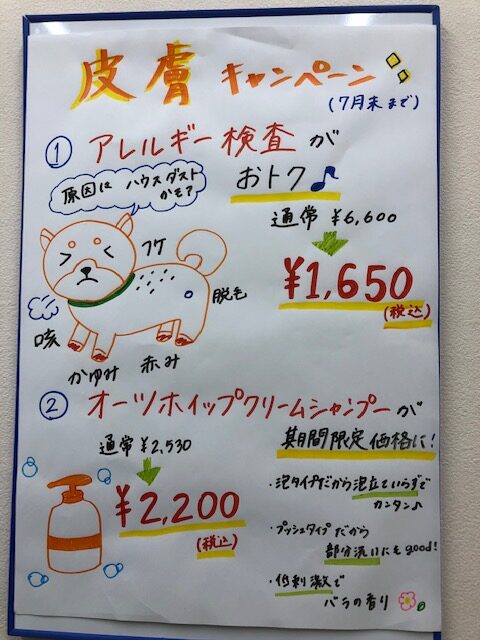 皮膚 キャンペーン
(7月末まで)
① アレルギー検査が
おトク♪
原因は ハウスダスト
かも?
通常 ¥6,600
¥1,650
(税込)
フケ
脱毛
咳
かゆみ
赤み
② オーツホイップクリームシャンプーが
期間限定価格に!
通常 ¥2,530
¥2,200
(税込)
・泡タイプだから泡立ていらずで
カンタン♪
・プッシュタイプだから
部分洗いにもgood!
・低刺激で
バラの香り